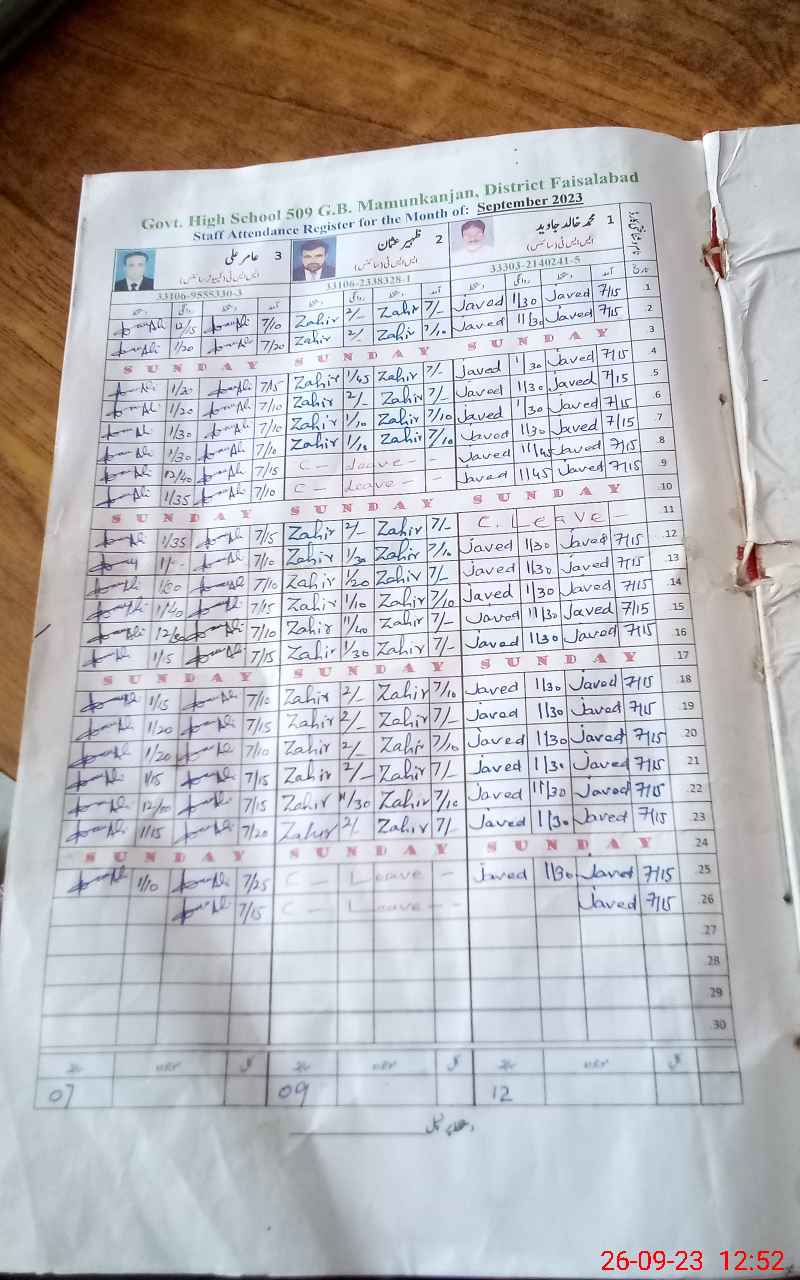 Govt. High School 509 G.B. Mamunkanjan, District Faisalabad
Staff Attendance Register for the Month of: September 2023
1 محمد خالد جاوید 2 ظہیر عثمان 3 عامر علی
ایس ایس ٹی (سائنس) ایس ایس ٹی (سائنس) ایس ایس ٹی (کمپیوٹر سائنس)
33106-9555330-3 33106-2338328-1 33303-2140241-5
تاریخ آمد دستخط روانگی دستخط آمد دستخط روانگی دستخط آمد دستخط روانگی دستخط
12/5 7/10 Zahir 2/- Zahir 7/- Javed 1/30 Javed 7/15 .1
1/20 7/20 Zahir 2/- Zahir 7/10 Javed 11/30 Javed 7/15 .2
SUNDAY SUNDAY SUNDAY .3
1/20 7/15 Zahir 1/45 Zahir 7/- Javed 1/30 Javed 7/15 .4
1/20 7/10 Zahir 2/- Zahir 7/- Javed 11/30 Javed 7/15 .5
1/30 7/10 Zahir 1/10 Zahir 7/10 Javed 1/30 Javed 7/15 .6
1/30 7/10 Zahir 1/10 Zahir 7/10 Javed 11/30 Javed 7/15 .7
12/40 7/15 C - leave - - Javed 11/45 Javed 7/15 .8
1/35 7/10 C - Leave - - Javed 11/45 Javed 7/15 .9
SUNDAY SUNDAY SUNDAY .10
1/35 7/15 Zahir 2/- Zahir 7/- C. Leave - .11
7/10 Zahir 1/30 Zahir 7/10 Javed 11/30 Javed 7/15 .12
7/10 Zahir 1/20 Zahir 7/- Javed 11/30 Javed 7/15 .13
7/15 Zahir 1/10 Zahir 7/10 Javed 1/30 Javed 7/15 .14
7/10 Zahir 11/40 Zahir 7/- Javed 11/30 Javed 7/15 .15
1/15 7/15 Zahir 1/30 Zahir 7/- Javed 11/30 Javed 7/15 .16
SUNDAY SUNDAY SUNDAY .17
1/15 7/10 Zahir 2/- Zahir 7/10 Javed 11/30 Javed 7/15 .18
1/20 7/15 Zahir 2/- Zahir 7/- Javed 11/30 Javed 7/15 .19
1/20 7/10 Zahir 2/- Zahir 7/10 Javed 11/30 Javed 7/15 .20
1/15 7/15 Zahir 2/- Zahir 7/- Javed 11/30 Javed 7/15 .21
12/00 7/15 Zahir 11/30 Zahir 7/10 Javed 11/30 Javed 7/15 .22
11/15 7/20 Zahir 2/- Zahir 7/- Javed 11/30 Javed 7/15 .23
SUNDAY SUNDAY SUNDAY .24
1/10 7/25 C - Leave - - Javed 11/30 Javed 7/15 .25
7/15 C - Leave - - Javed 7/15 .26
.27
.28
.29
.30
07 09 12
26-09-23 12:52